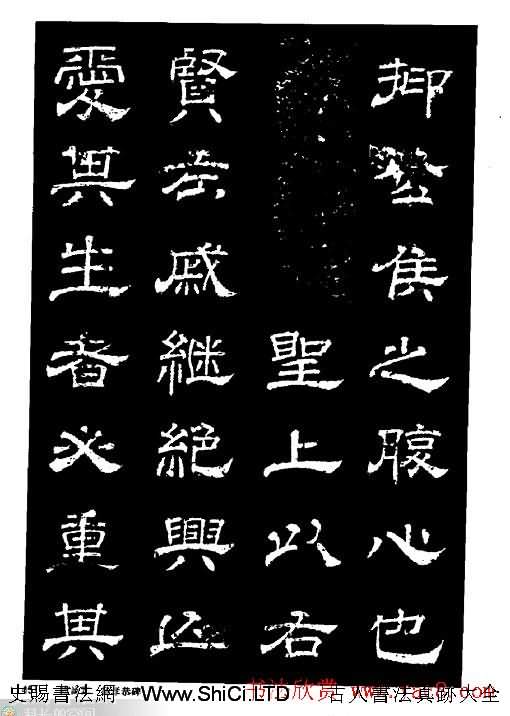 抑侯之腹心也
聖上以右
賢左戚繼絕興亡
愛其生者必重其
书法欣赏
史賜書法網 Www.ShiCi.LTD 古人書法真跡大全